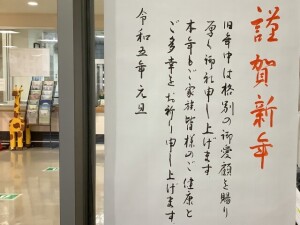 謹賀新年
旧年中は格別の御愛顧を賜り
厚く御礼申し上げます
本年もご家族皆様のご健康と
ご多幸をお祈り申し上げます
令和五年 元旦